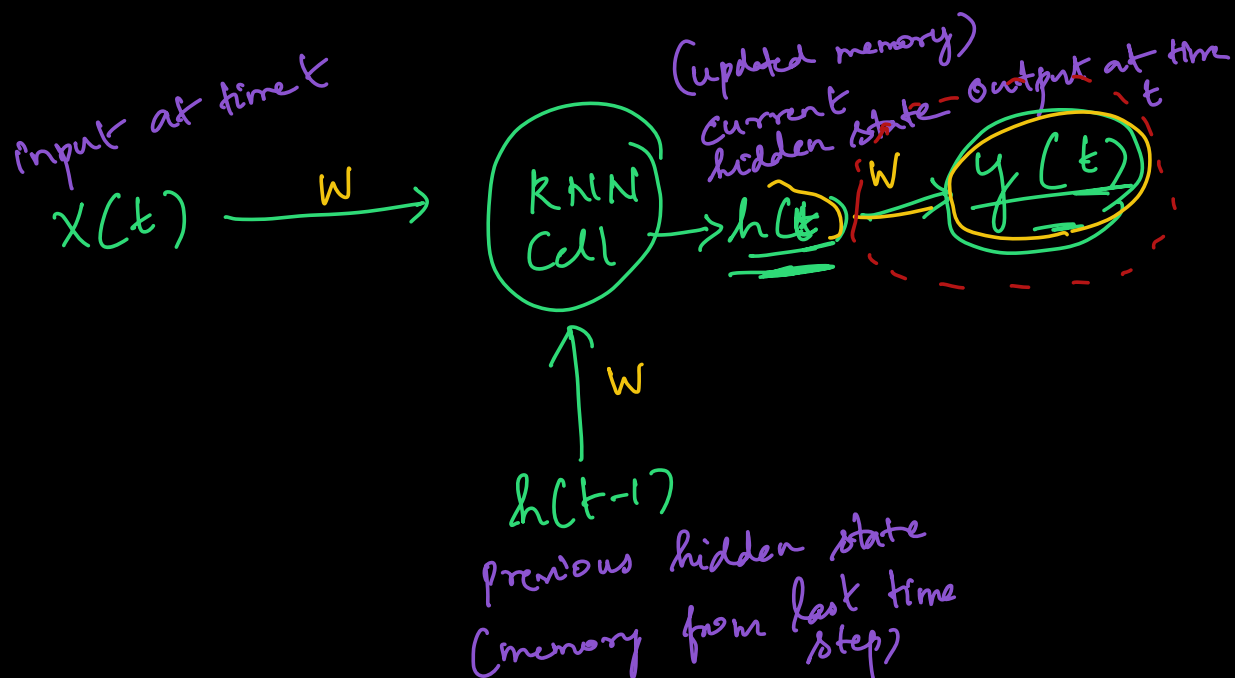 input at time t
x(t)
W
RNN
Cell
(updated memory)
current
hidden state
h(t)
W
output at time
t
y(t)
W
h(t-1)
previous hidden state
(memory from last time
step)